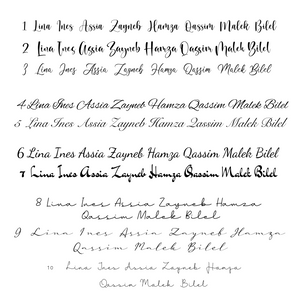 1 Lina Ines Assia Zayneb Hamza Qassim Malek Bilel
2 Lina Ines Assia Zayneb Hamza Qassim Malek Bilel
3 Lina Ines Assia Zayneb Hamza Qassim Malek Bilel
4 Lina Ines Assia Zayneb Hamza Qassim Malek Bilel
5 Lina Ines Assia Zayneb Hamza Qassim Malek Bilel
6 Lina Ines Assia Zayneb Hamza Qassim Malek Bilel
7 Lina Ines Assia Zayneb Hamza Qassim Malek Bilel
8 Lina Ines Assia Zayneb Hamza
Qassim Malek Bilel
9 Lina Ines Assia Zayneb Hamza
Qassim Malek Bilel
10 Lina Ines Assia Zayneb Hamza
Qassim Malek Bilel